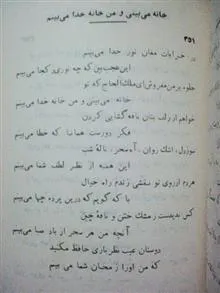 خانه می‌بینی و من خانه خدا می‌بینم
۳۵۱
در خرابات مغان نور خدا می‌بینم
این عجب بین که چه نوری ز کجا می‌بینم
جلوه بر من مفروش ای ملک الحاج که تو
خانه می‌بینی و من خانه خدا می‌بینم
خواهم از زلف بتان نافه گشایی کردن
فکر دورست همانا که خطا می‌بینم
سوز دل، اشک روان، آه سحر، ناله شب
این همه از نظر لطف شما می‌بینم
هردم از روی تو نقشی زندم راه خیال
با که گویم که درین پرده چها می‌بینم
کس ندیدست ز مشک ختن و نافه چین
آنچه من هر سحر از باد صبا می‌بینم
دوستان عیب نظربازی حافظ مکنید
که من او را ز محبان شما می‌بینم